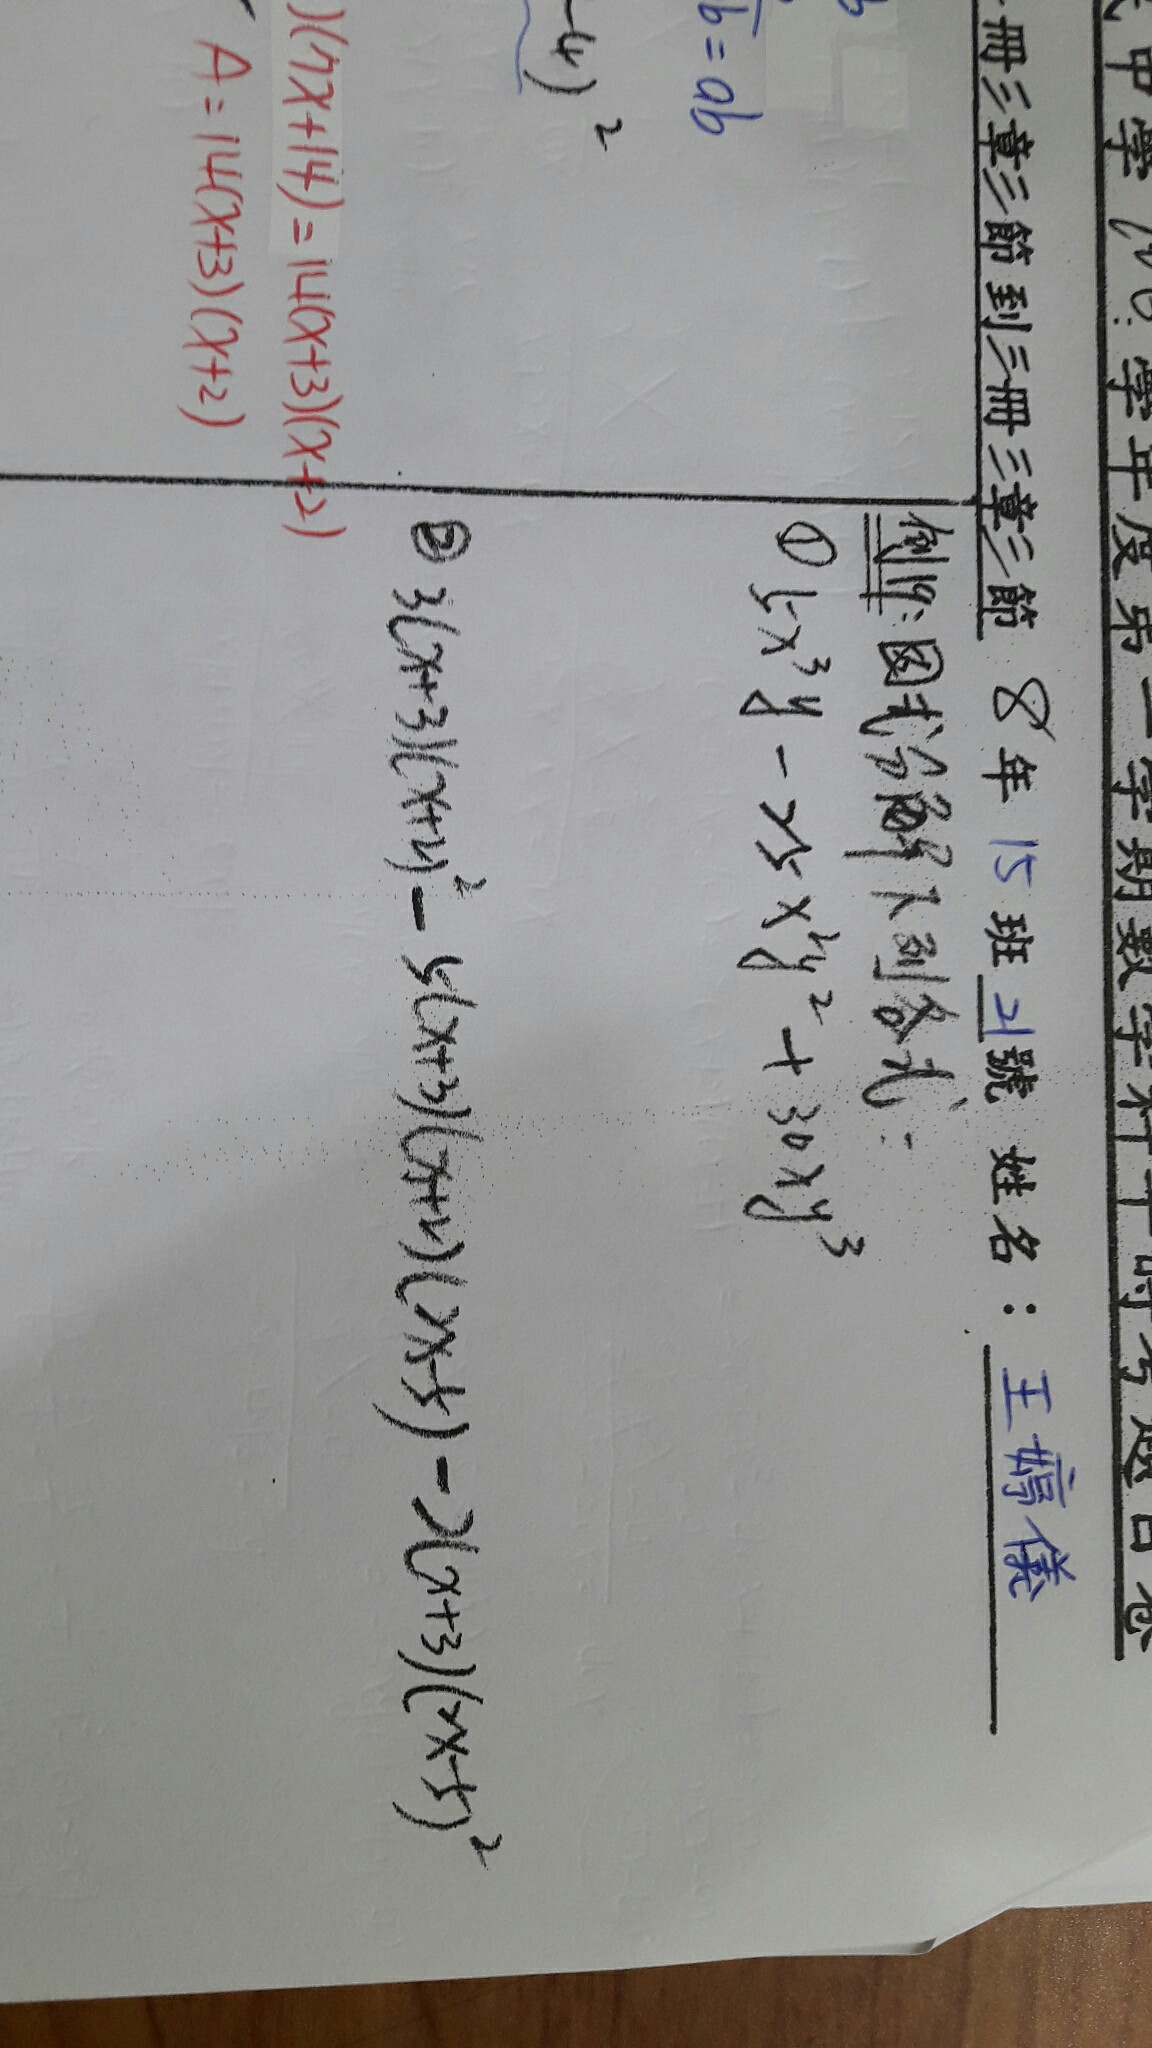 中學 學年度第二學期數學科平時考題目卷
冊三章三節到三冊三章三節 8年15班21號 姓名：王婷儀
b = ab
-4)²
)(7x+14)=14(x+3)(x+2)
A=14(x+3)(x+2)
例19:因式分解下列各式:
① 5x³y - 25x²y² + 30xy³
② 3(x+3)(x+4)² - 5(x+3)(x+4)(2x-5) - 2(x+3)(2x-5)²